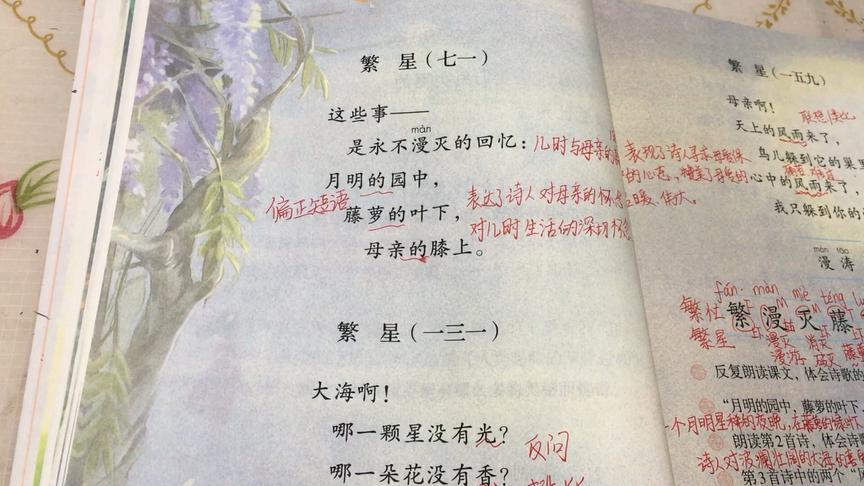 繁 星（七一）
这些事——
màn
是永不漫灭的回忆：儿时与母亲的
月明的园中，
偏正短语
藤萝的叶下，
表达了诗人对母亲的怀念
对儿时生活的深切怀念
母亲的膝上。
繁 星（一三一）
大海啊！
哪一颗星没有光？
反问
哪一朵花没有香？
繁星（一五九）
母亲啊！
联想
天上的风雨来了，
鸟儿躲到它的巢里
表现了诗人寻求母爱保
心中的风雨来了，
伟大。
我只躲到你的
màn tāo
漫 涛
fán màn miè téng
繁忙
繁星
繁 漫 灭 藤
漫灭
漫游
反复朗读课文，体会诗歌的
“月明的园中，藤萝的叶下
一个月明星稀的夜晚，在
朗读第2首诗，体会诗
诗人对波澜壮阔的大海的喜
第3首诗中的两个“风